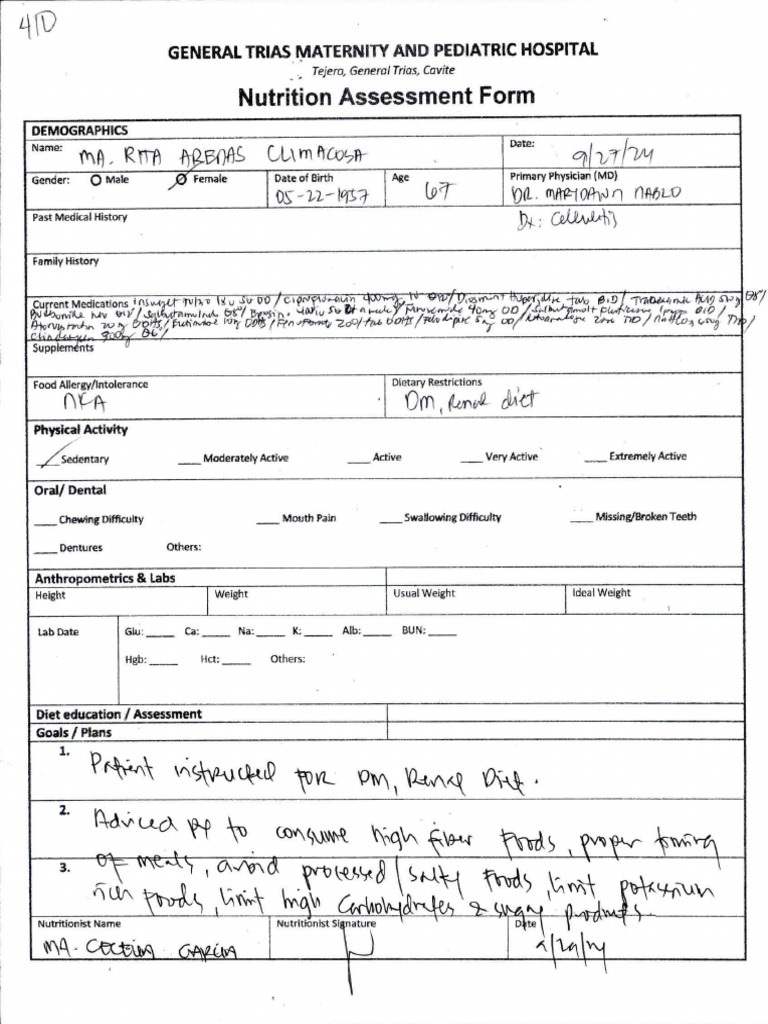 4/D
GENERAL TRIAS MATERNITY AND PEDIATRIC HOSPITAL
Tejero, General Trias, Cavite
Nutrition Assessment Form
DEMOGRAPHICS
Name: MA. RITA ARENAS CLIMACOSA Date: 9/27/24
Gender: Male Female Date of Birth 05-22-1957 Age 67 Primary Physician (MD) DR. MARYDAWN NABLO
Past Medical History Dx: Cellulitis
Family History
Current Medications 400mg IV / tab BID / Tranexamic Acid 500mg Q8°/
neb / Furosemide 40mg OD / BID /
20mg ODHS / 10mg ODHS / 200 / tab ODHS / Felodipine 5mg OD / TID /
300mg Q6°/
Supplements
Food Allergy/Intolerance NKA Dietary Restrictions DM, Renal diet
Physical Activity
Sedentary Moderately Active Active Very Active Extremely Active
Oral/ Dental
Chewing Difficulty Mouth Pain Swallowing Difficulty Missing/Broken Teeth
Dentures Others:
Anthropometrics & Labs
Height Weight Usual Weight Ideal Weight
Lab Date Glu: _____ Ca: _____ Na: _____ K: _____ Alb: _____ BUN: _____
Hgb: _____ Hct: _____ Others:
Diet education / Assessment
Goals / Plans
1. Patient instructed for DM, Renal Diet.
2. Adviced px to consume high fiber foods, proper timing
3. of meals, avoid processed/salty foods, limit potassium
rich foods, limit high carbohydrates & sugary products.
Nutritionist Name Nutritionist Signature Date
MA. CECELIA GARCIA 9/29/24